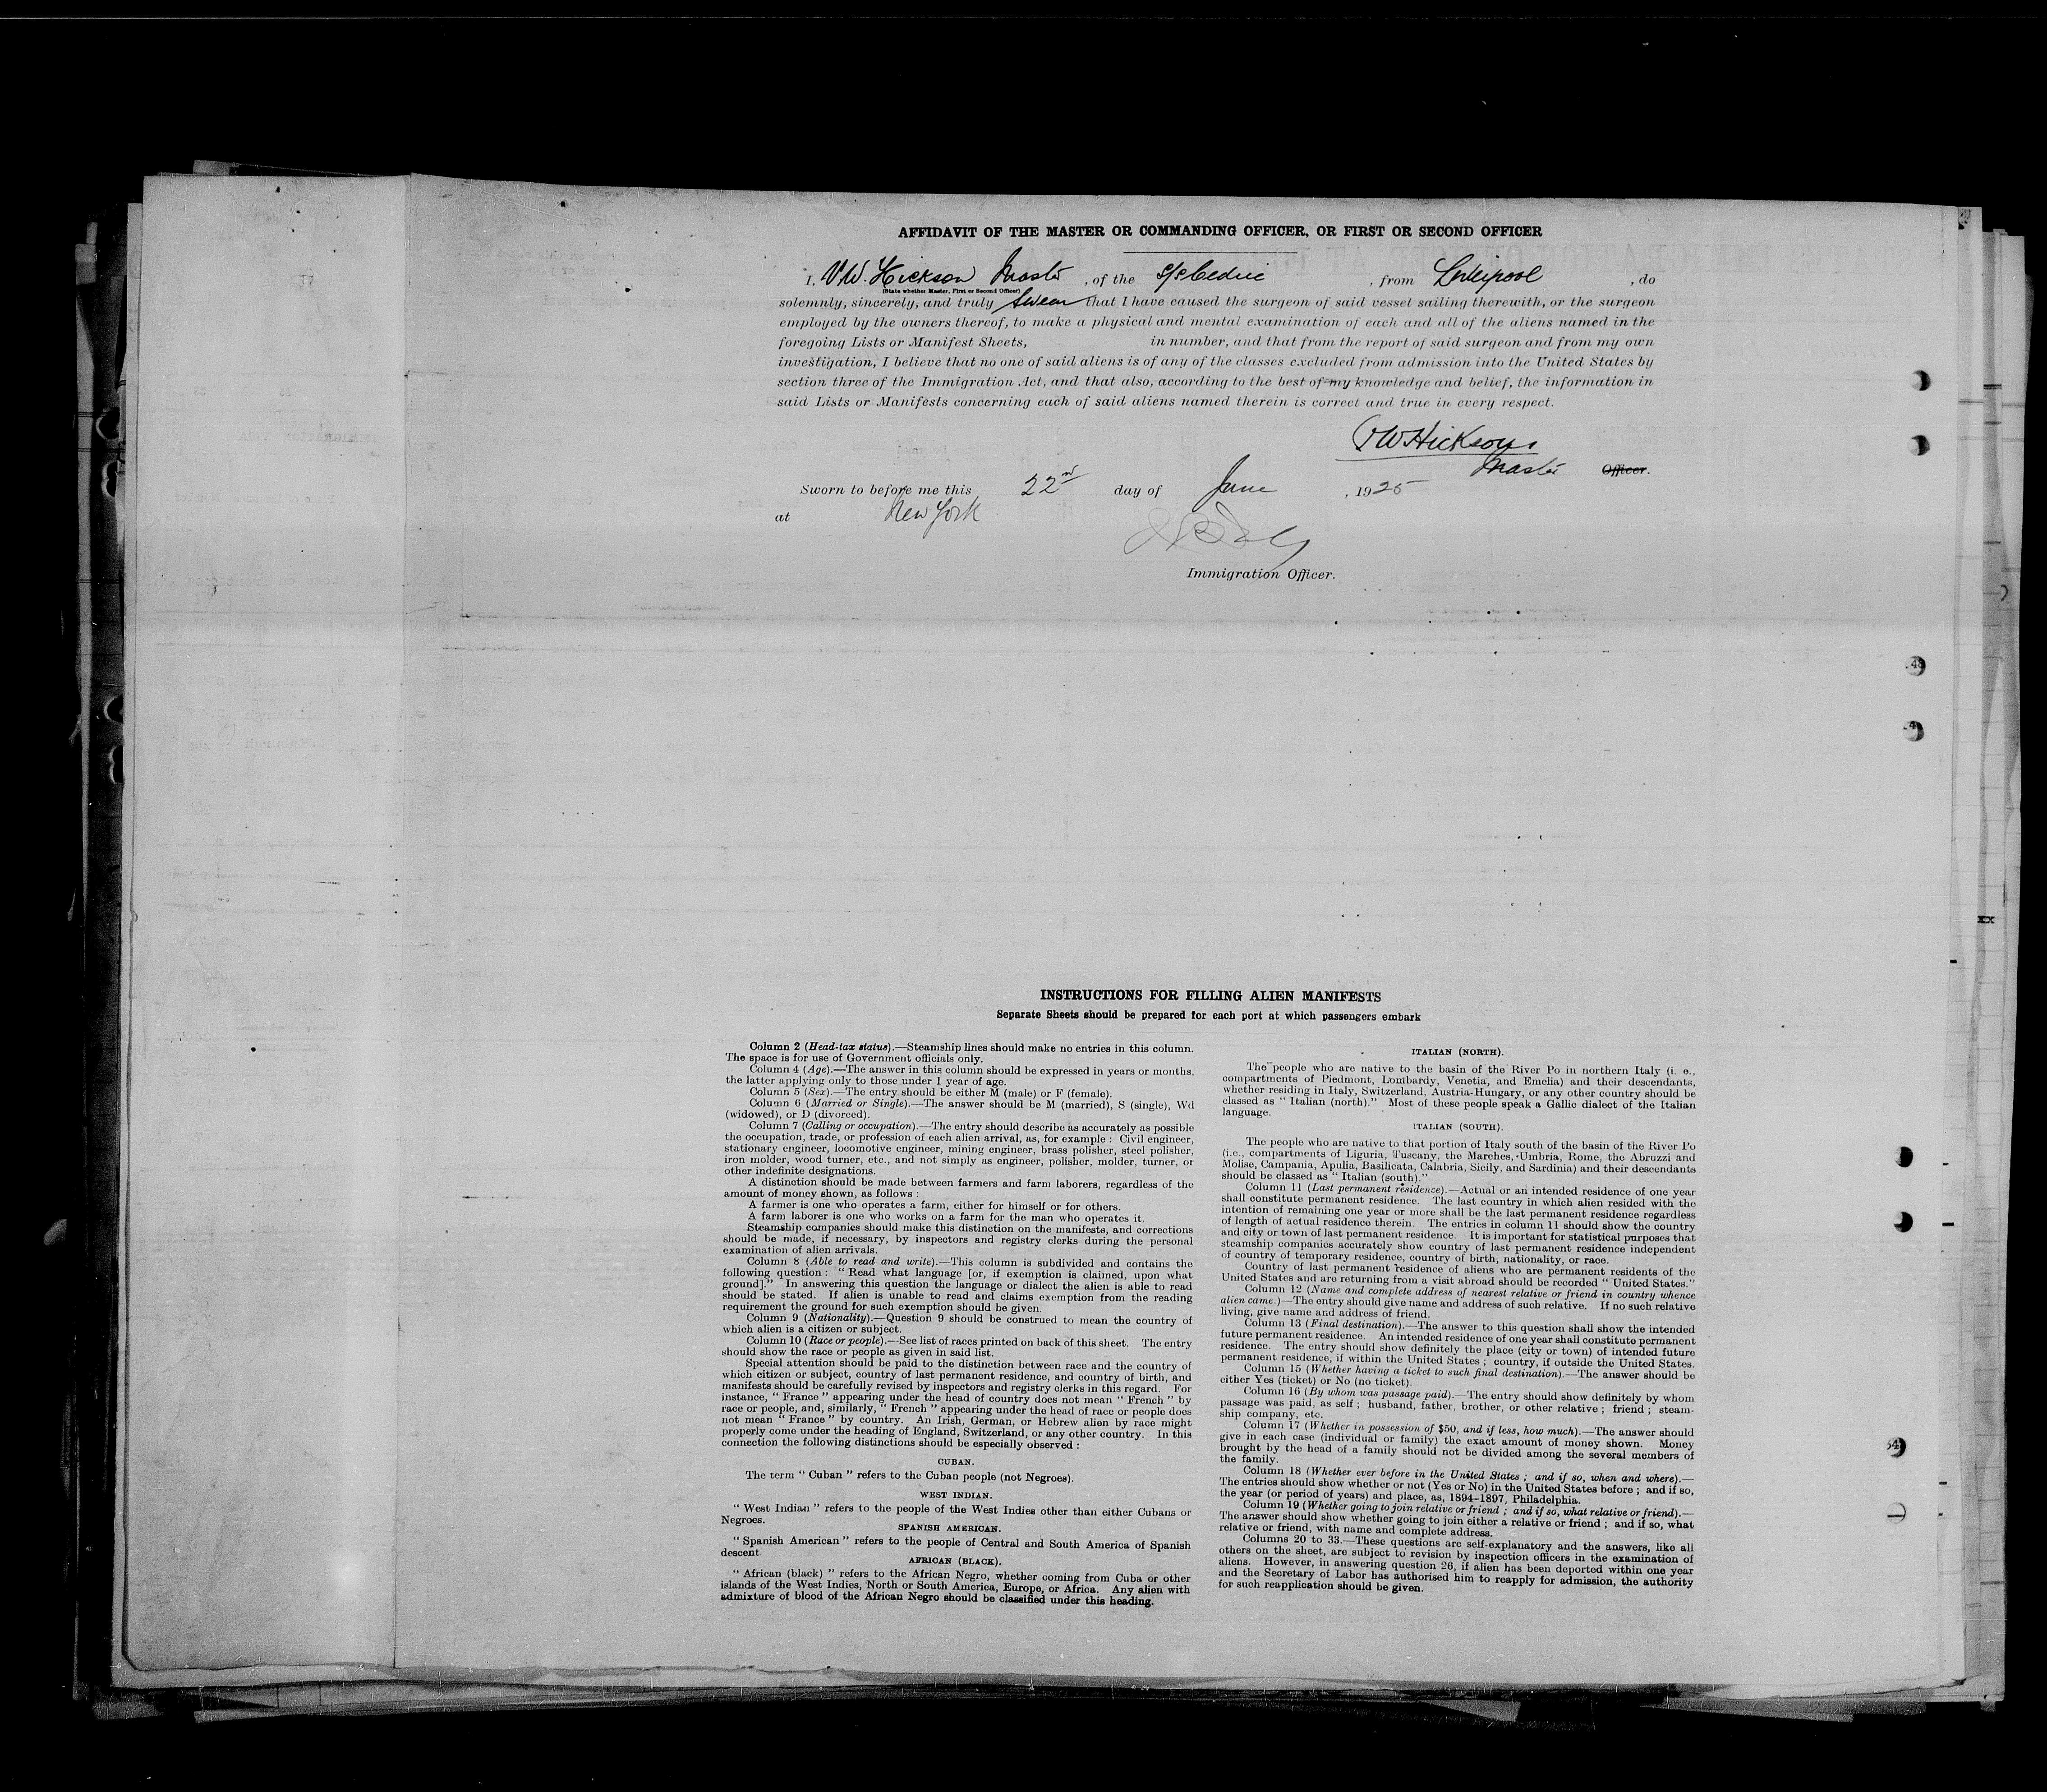 AFFIDAVIT OF THE MASTER OR COMMANDING OFFICER, OR FIRST OR SECOND OFFICER
I, V.W. Hickson Master, of the s/s Cedric, from Liverpool, do
(State whether Master, First or Second Officer)
solemnly, sincerely, and truly swear that I have caused the surgeon of said vessel sailing therewith, or the surgeon
employed by the owners thereof, to make a physical and mental examination of each and all of the aliens named in the
foregoing Lists or Manifest Sheets, in number, and that from the report of said surgeon and from my own
investigation, I believe that no one of said aliens is of any of the classes excluded from admission into the United States by
section three of the Immigration Act, and that also, according to the best of my knowledge and belief, the information in
said Lists or Manifests concerning each of said aliens named therein is correct and true in every respect.
VW Hickson
Master Officer.
Sworn to before me this 22nd day of June, 1925
at New York
Immigration Officer.
INSTRUCTIONS FOR FILLING ALIEN MANIFESTS
Separate Sheets should be prepared for each port at which passengers embark
Column 2 (Head-tax status).—Steamship lines should make no entries in this column.
The space is for use of Government officials only.
Column 4 (Age).—The answer in this column should be expressed in years or months,
the latter applying only to those under 1 year of age.
Column 5 (Sex).—The entry should be either M (male) or F (female).
Column 6 (Married or Single).—The answer should be M (married), S (single), Wd
(widowed), or D (divorced).
Column 7 (Calling or occupation).—The entry should describe as accurately as possible
the occupation, trade, or profession of each alien arrival, as, for example : Civil engineer,
stationary engineer, locomotive engineer, mining engineer, brass polisher, steel polisher,
iron molder, wood turner, etc., and not simply as engineer, polisher, molder, turner, or
other indefinite designations.
A distinction should be made between farmers and farm laborers, regardless of the
amount of money shown, as follows :
A farmer is one who operates a farm, either for himself or for others.
A farm laborer is one who works on a farm for the man who operates it.
Steamship companies should make this distinction on the manifests, and corrections
should be made, if necessary, by inspectors and registry clerks during the personal
examination of alien arrivals.
Column 8 (Able to read and write).—This column is subdivided and contains the
following question : " Read what language [or, if exemption is claimed, upon what
ground]." In answering this question the language or dialect the alien is able to read
should be stated. If alien is unable to read and claims exemption from the reading
requirement the ground for such exemption should be given.
Column 9 (Nationality).—Question 9 should be construed to mean the country of
which alien is a citizen or subject.
Column 10 (Race or people).—See list of races printed on back of this sheet. The entry
should show the race or people as given in said list.
Special attention should be paid to the distinction between race and the country of
which citizen or subject, country of last permanent residence, and country of birth, and
manifests should be carefully revised by inspectors and registry clerks in this regard. For
instance, " France " appearing under the head of country does not mean " French " by
race or people, and, similarly, " French " appearing under the head of race or people does
not mean " France " by country. An Irish, German, or Hebrew alien by race might
properly come under the heading of England, Switzerland, or any other country. In this
connection the following distinctions should be especially observed :
CUBAN.
The term " Cuban " refers to the Cuban people (not Negroes).
WEST INDIAN.
" West Indian " refers to the people of the West Indies other than either Cubans or
Negroes.
SPANISH AMERICAN.
" Spanish American " refers to the people of Central and South America of Spanish
descent.
AFRICAN (BLACK).
" African (black) " refers to the African Negro, whether coming from Cuba or other
islands of the West Indies, North or South America, Europe, or Africa. Any alien with
admixture of blood of the African Negro should be classified under this heading.
ITALIAN (NORTH).
The people who are native to the basin of the River Po in northern Italy (i. e.,
compartments of Piedmont, Lombardy, Venetia, and Emelia) and their descendants,
whether residing in Italy, Switzerland, Austria-Hungary, or any other country should be
classed as " Italian (north)." Most of these people speak a Gallic dialect of the Italian
language.
ITALIAN (SOUTH).
The people who are native to that portion of Italy south of the basin of the River Po
(i.e., compartments of Liguria, Tuscany, the Marches, Umbria, Rome, the Abruzzi and
Molise, Campania, Apulia, Basilicata, Calabria, Sicily, and Sardinia) and their descendants
should be classed as " Italian (south)."
Column 11 (Last permanent residence).—Actual or an intended residence of one year
shall constitute permanent residence. The last country in which alien resided with the
intention of remaining one year or more shall be the last permanent residence regardless
of length of actual residence therein. The entries in column 11 should show the country
and city or town of last permanent residence. It is important for statistical purposes that
steamship companies accurately show country of last permanent residence independent
of country of temporary residence, country of birth, nationality, or race.
Country of last permanent residence of aliens who are permanent residents of the
United States and are returning from a visit abroad should be recorded " United States."
Column 12 (Name and complete address of nearest relative or friend in country whence
alien came.)—The entry should give name and address of such relative. If no such relative
living, give name and address of friend.
Column 13 (Final destination).—The answer to this question shall show the intended
future permanent residence. An intended residence of one year shall constitute permanent
residence. The entry should show definitely the place (city or town) of intended future
permanent residence, if within the United States ; country, if outside the United States.
Column 15 (Whether having a ticket to such final destination).—The answer should be
either Yes (ticket) or No (no ticket).
Column 16 (By whom was passage paid).—The entry should show definitely by whom
passage was paid, as self ; husband, father, brother, or other relative ; friend ; steam-
ship company, etc.
Column 17 (Whether in possession of $50, and if less, how much).—The answer should
give in each case (individual or family) the exact amount of money shown. Money
brought by the head of a family should not be divided among the several members of
the family.
Column 18 (Whether ever before in the United States ; and if so, when and where).—
The entries should show whether or not (Yes or No) in the United States before ; and if so,
the year (or period of years) and place, as, 1894-1897, Philadelphia.
Column 19 (Whether going to join relative or friend ; and if so, what relative or friend).—
The answer should show whether going to join either a relative or friend ; and if so, what
relative or friend, with name and complete address.
Columns 20 to 33.—These questions are self-explanatory and the answers, like all
others on the sheet, are subject to revision by inspection officers in the examination of
aliens. However, in answering question 26, if alien has been deported within one year
and the Secretary of Labor has authorised him to reapply for admission, the authority
for such reapplication should be given.